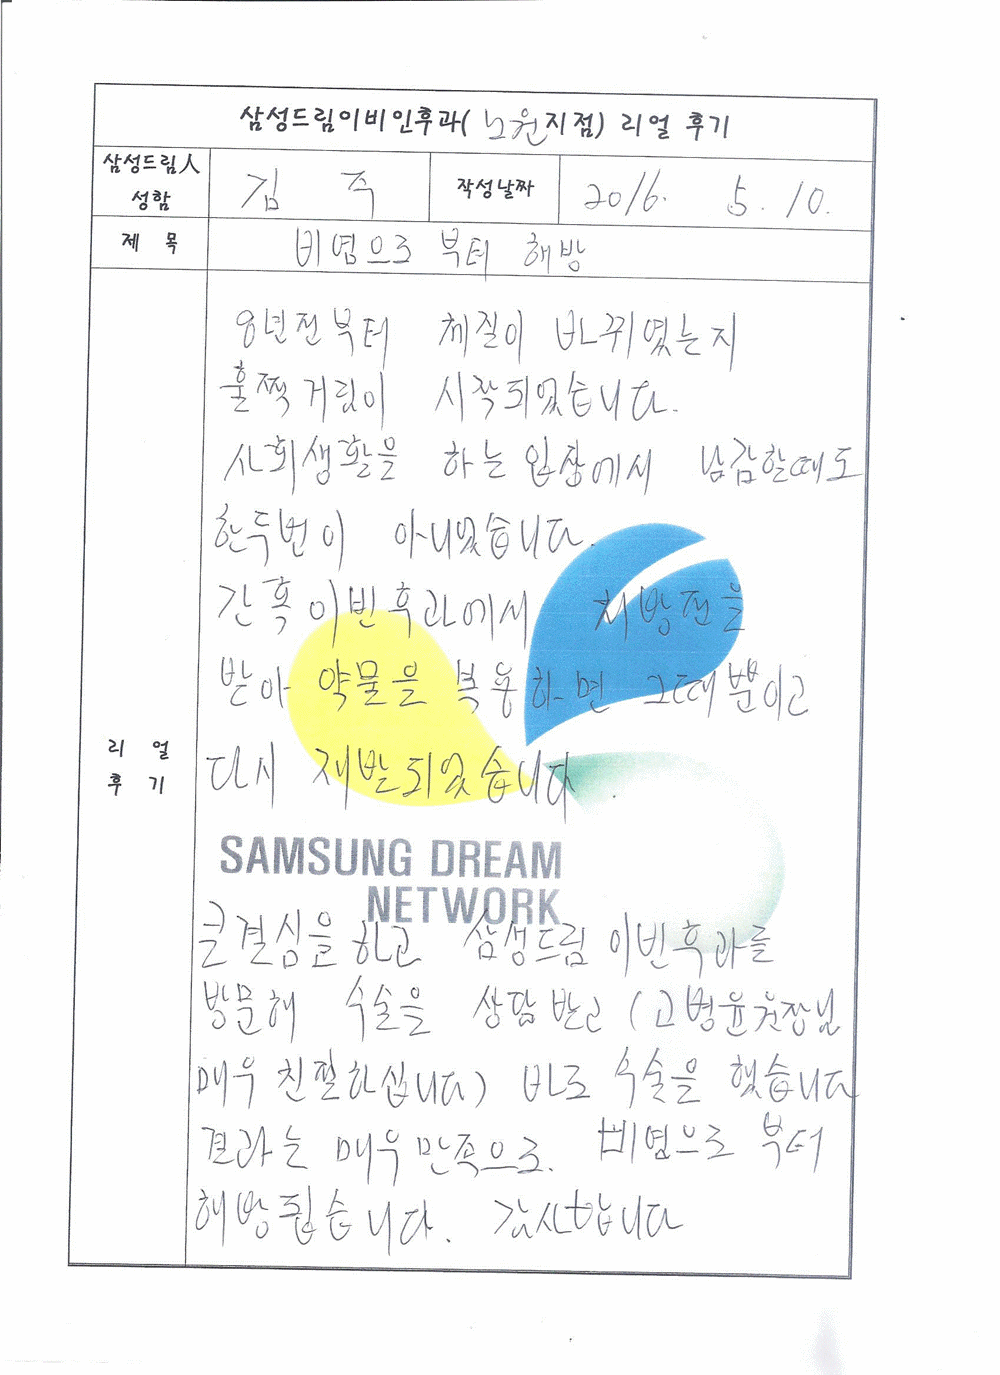 삼성드림이비인후과( 노원지점) 리얼 후기
삼성드림人 성함 김 직 작성날짜 2016. 5. 10.
제 목 비염으로 부터 해방
8년전부터 체질이 바뀌였는지
훌쩍거림이 시작되었습니다.
사회생활을 하는 입장에서 남감할때도
한두번이 아니었습니다.
간혹 이빈후과에서 처방전을
받아 약물을 복용하면 그때뿐이고
다시 재발되었습니다.
리 얼
후 기
SAMSUNG DREAM
NETWORK
큰결심을 하고 삼성드림 이빈후과를
방문해 수술을 상담받고 (고병윤원장님
매우 친절하십니다) 바로 수술을 했습니다
결과는 매우만족으로. 비염으로 부터
해방됩습니다. 감사합니다